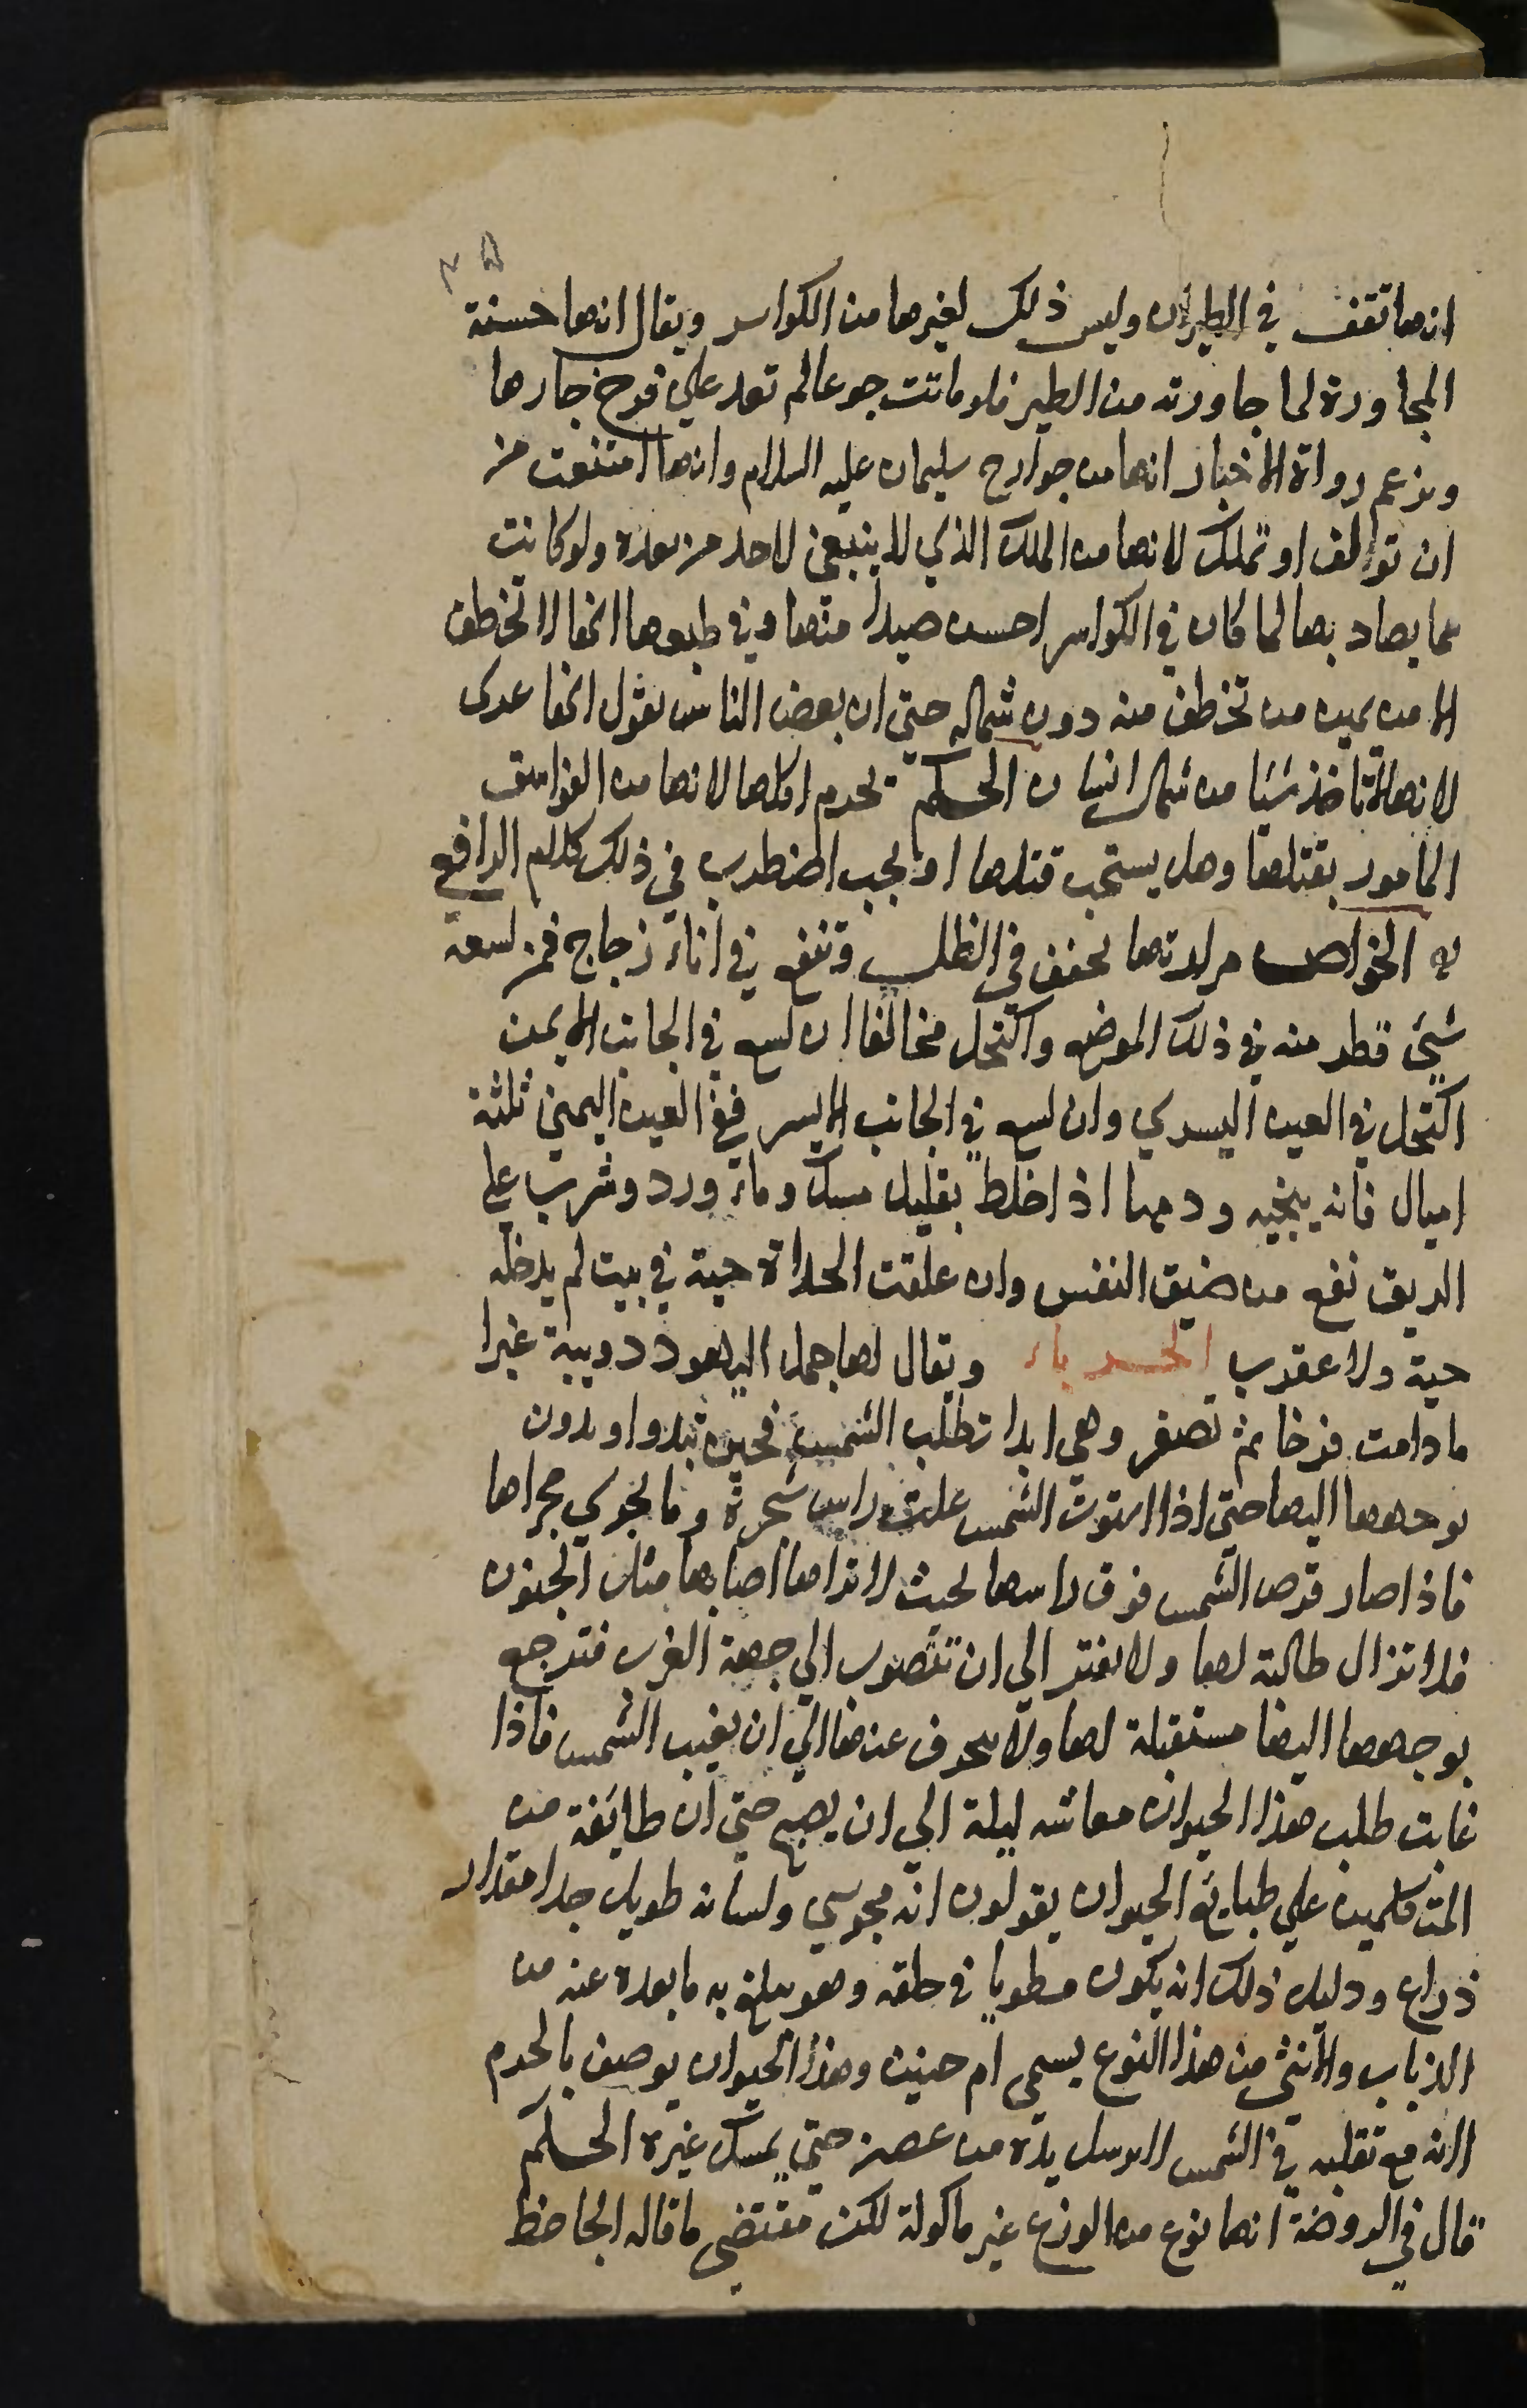 ٣٥
انها تقف في الطيران وليس ذلك لغيرها من الكواسر ويقال انها حسنة
المجاورة لما جاورته من الطير فلو ماتت جوعا لم تعد علي فرخ جارها
وتزعم رواة الاخبار انها من جوارح سليمان عليه السلام وانها امتنعت من
ان توالف او تملك لانها من الملك الذي لا ينبغي لاحد من بعده ولو كانت
مما يصاد بها لما كان في الكواسر احسن صيدا منها وفي طبعها انها لا تخطف
الا من يمين من تخطف منه دون شماله حتي ان بعض الناس يقول انها عسرى
لانها لا تاخذ شيئا من شمال انسان الحكم يحرم اكلها لانها من الفواسق
المامور بقتلها وهل يستحب قتلها او يجب اضطرب في ذلك كلام الرافعي
الخواص مرارتها تجفف في الظل وتنقع في اناء زجاج فمن لسعه
شيئ قطر منه في ذلك الموضع واكتحل مخالفا ان لسع في الجانب الايمن
اكتحل في العين اليسري وان لسع في الجانب الايسر ففي العين اليمني ثلثة
اميال فانه ينجيه ودمها اذا خلط بقليل مسك وماء ورد وشرب علي
الريق نفع من ضيق النفس وان علقت الحداة حية في بيت لم يدخله
حية ولا عقرب الحرباء ويقال لها جمل اليهود دويبة غبرا
ما دامت فرخا ثم تصفر وهي ابدا تطلب الشمس فحين تبدو اويدون
بوجهها اليها حتي اذا استوت الشمس علت راس شجرة وما يجري مجراها
فاذا صار قرص الشمس فوق راسها بحيث لا تراها اصابها مثل الجنون
فلا تزال طالبة لها ولا يفتر الي ان تتصوب الي جهة الغرب فترجع
بوجهها اليها مستقبلة لها ولا تنحرف عنها الي ان يغيب الشمس فاذا
غابت طلب هذا الحيوان معاشه ليلة الي ان يصبح حتي ان طائفة من
المتكلمين علي طبايع الحيوان يقولون انه مجوسي ولسانه طويل جدا مقدار
ذراع ودليل ذلك انه يكون مطويا في حلقه وهو يبلغ به ما بعد عنه من
الذباب والانثي من هذا النوع يسمى ام حنين وهذا الحيوان يوصف بالحزم
لانه مع تقلبه في الشمس لا يرسل يده من غصن حتي يمسك غيره الحكم
قال في الروضة انها نوع من الوزغ غير ماكولة لكن مقتضى ما قاله الجاحظ